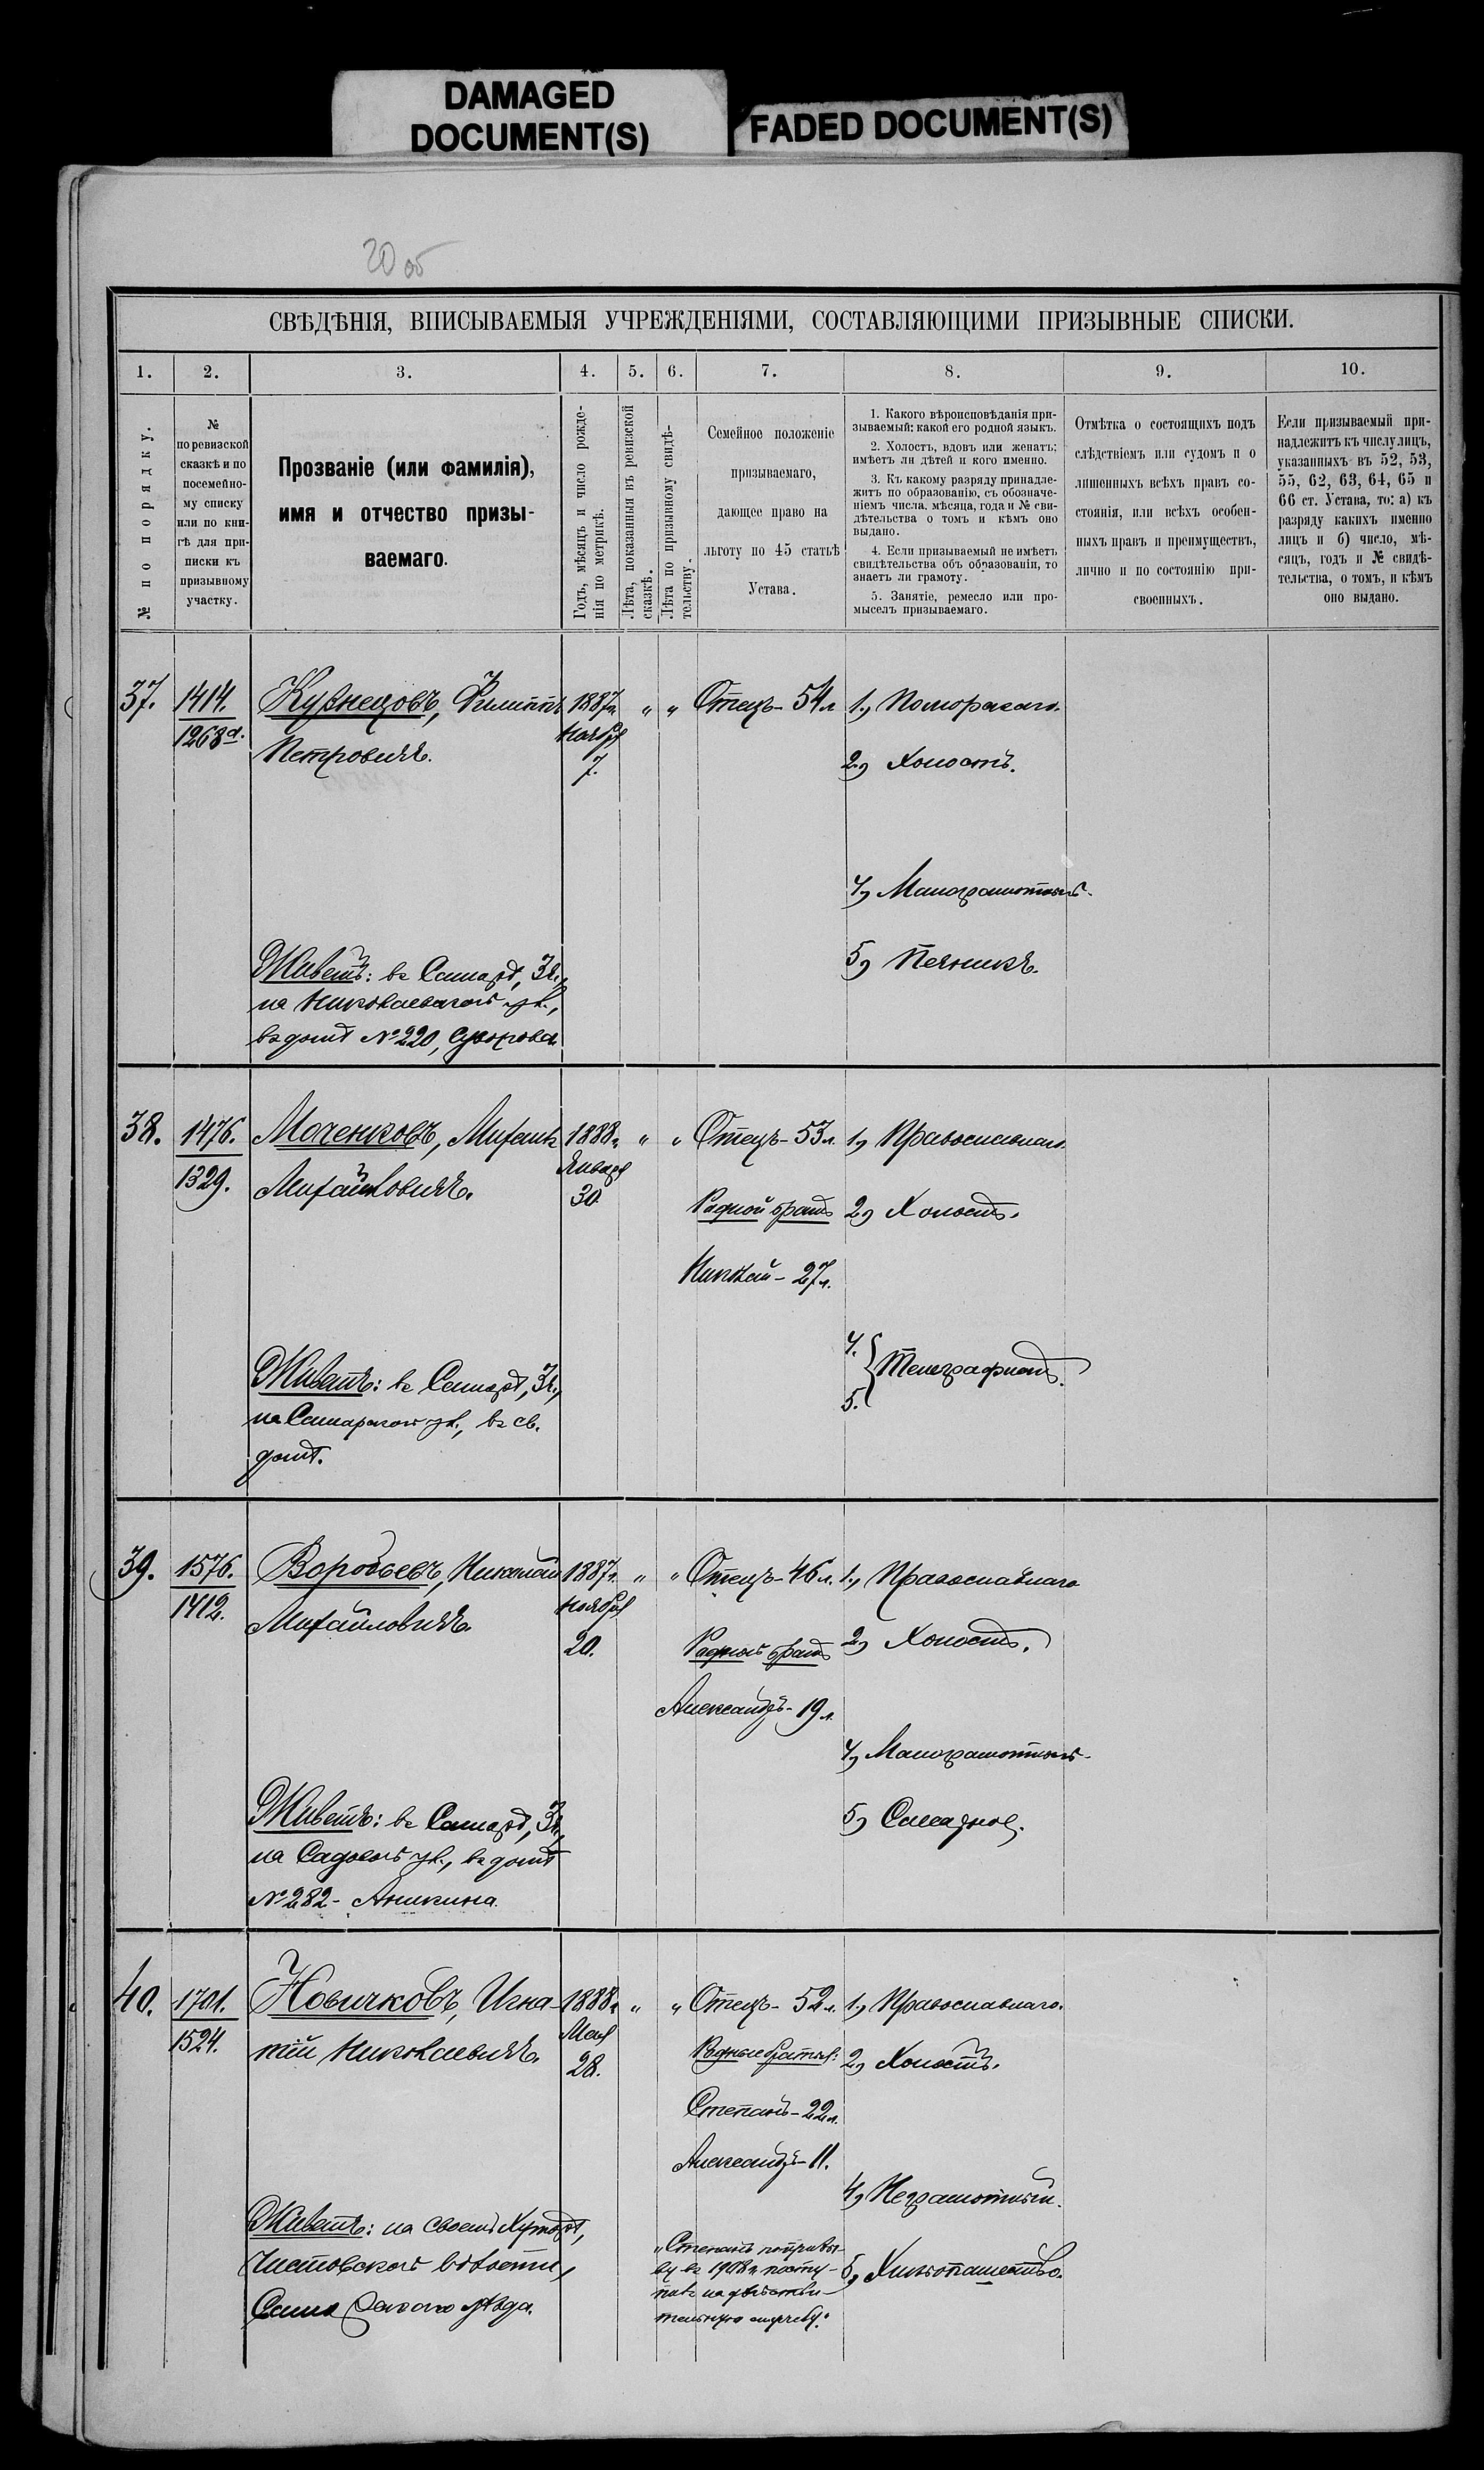 DAMAGED
DOCUMENT(S)
FADED DOCUMENT(S)
20 об
СВѢДѢНІЯ, ВПИСЫВАЕМЫЯ УЧРЕЖДЕНІЯМИ, СОСТАВЛЯЮЩИМИ ПРИЗЫВНЫЕ СПИСКИ.
1. 2. 3. 4. 5. 6. 7. 8. 9. 10.
№ по порядку.
№
по ревизской
сказкѣ и по
посемейно-
му списку
или по кни-
гѣ для при-
писки къ
призывному
участку.
Прозваніе (или фамилія),
имя и отчество призы-
ваемаго.
Годъ, мѣсяцъ и число рожде-
нія по метрикѣ.
Лѣта, показанныя въ ревизской
сказкѣ.
Лѣта по призывному свидѣ-
тельству.
Семейное положеніе
призываемаго,
дающее право на
льготу по 45 статьѣ
Устава.
1. Какого вѣроисповѣданія при-
зываемый: какой его родной языкъ.
2. Холостъ, вдовъ или женатъ;
имѣетъ ли дѣтей и кого именно.
3. Къ какому разряду принадле-
житъ по образованію, съ обозначе-
ніемъ числа, мѣсяца, года и № сви-
дѣтельства о томъ и кѣмъ оно
выдано.
4. Если призываемый не имѣетъ
свидѣтельства объ образованіи, то
знаетъ ли грамоту.
5. Занятіе, ремесло или про-
мыселъ призываемаго.
Отмѣтка о состоящихъ подъ
слѣдствіемъ или судомъ и о
лишенныхъ всѣхъ правъ со-
стоянія, или всѣхъ особен-
ныхъ правъ и преимуществъ,
лично и по состоянію при-
своенныхъ.
Если призываемый при-
надлежитъ къ числу лицъ,
указанныхъ въ 52, 53,
55, 62, 63, 64, 65 и
66 ст. Устава, то: а) къ
разряду какихъ именно
лицъ и б) число, мѣ-
сяцъ, годъ и № свидѣ-
тельства, о томъ, и кѣмъ
оно выдано.
37. 1414. Кузнецовъ, Филиппъ 1887г. " " Отецъ- 54 л. 1, Поморскаго.
1268а. Петровичъ. Ноября
7.
2, Холостъ.
4, Малограмотный.
5, Печникъ.
Живетъ: въ Самарѣ, 3ч.,
на Николаевской ул.,
въ домѣ № 220, Суворова
38. 1476. Моченковъ, Михаилъ 1888г. " " Отецъ- 53 л. 1, Православнаго.
1329. Михайловичъ. Января
30.
Родной братъ 2, Холостъ.
Николай- 27 л.
4.
5. Телеграфистъ.
Живетъ: въ Самарѣ, 3ч.,
на Самарской ул., въ св.
домѣ.
39. 1576. Воробьевъ, Николай 1887г. " " Отецъ- 46 л. 1, Православнаго
1412. Михайловичъ. Ноября
20.
Родной братъ 2, Холостъ.
Александръ- 19 л.
4, Малограмотный.
5,
Живетъ: въ Самарѣ, 3ч.,
на Садовой ул., въ домѣ
№ 282- Аникина.
40. 1701. Новичковъ, Игна- 1888г. " " Отецъ- 52 л. 1, Православнаго.
1524. тій Николаевичъ. Мая
28.
Родные братья: 2, Холостъ.
Степанъ- 22 л.
Александръ- 11.
4, Неграмотный.
5, Хлѣбопашество.
"Степанъ по призы-
ву въ 1908г. посту-
пилъ на дѣйстви-
тельную службу."
Живетъ: на своемъ хуторѣ,
волости,
Самарскаго уѣзда.